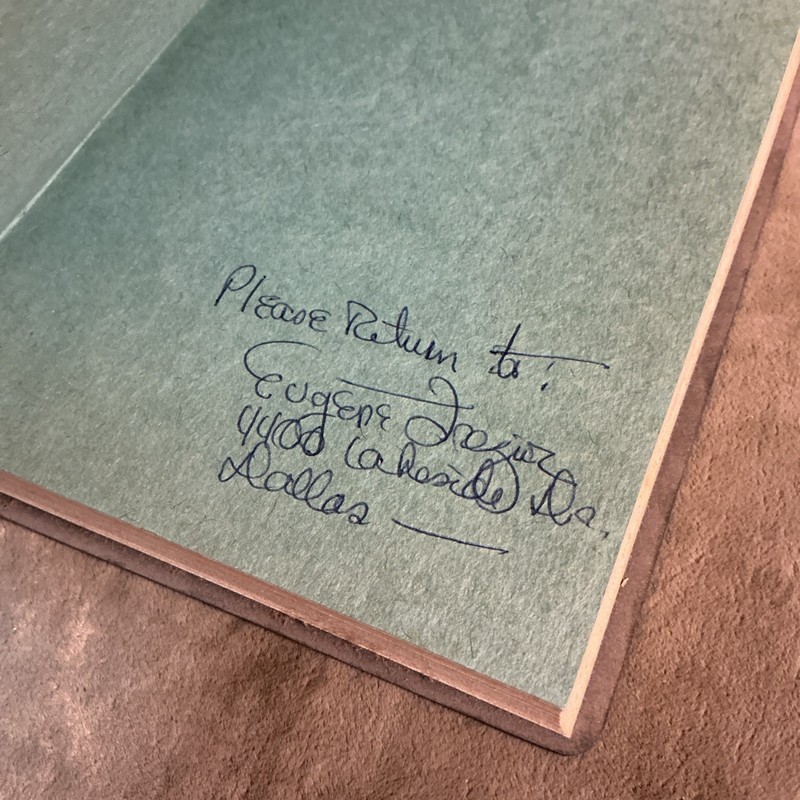 Please Return to:
Eugene Frazier
4400 Lakeside Dr.
Dallas —